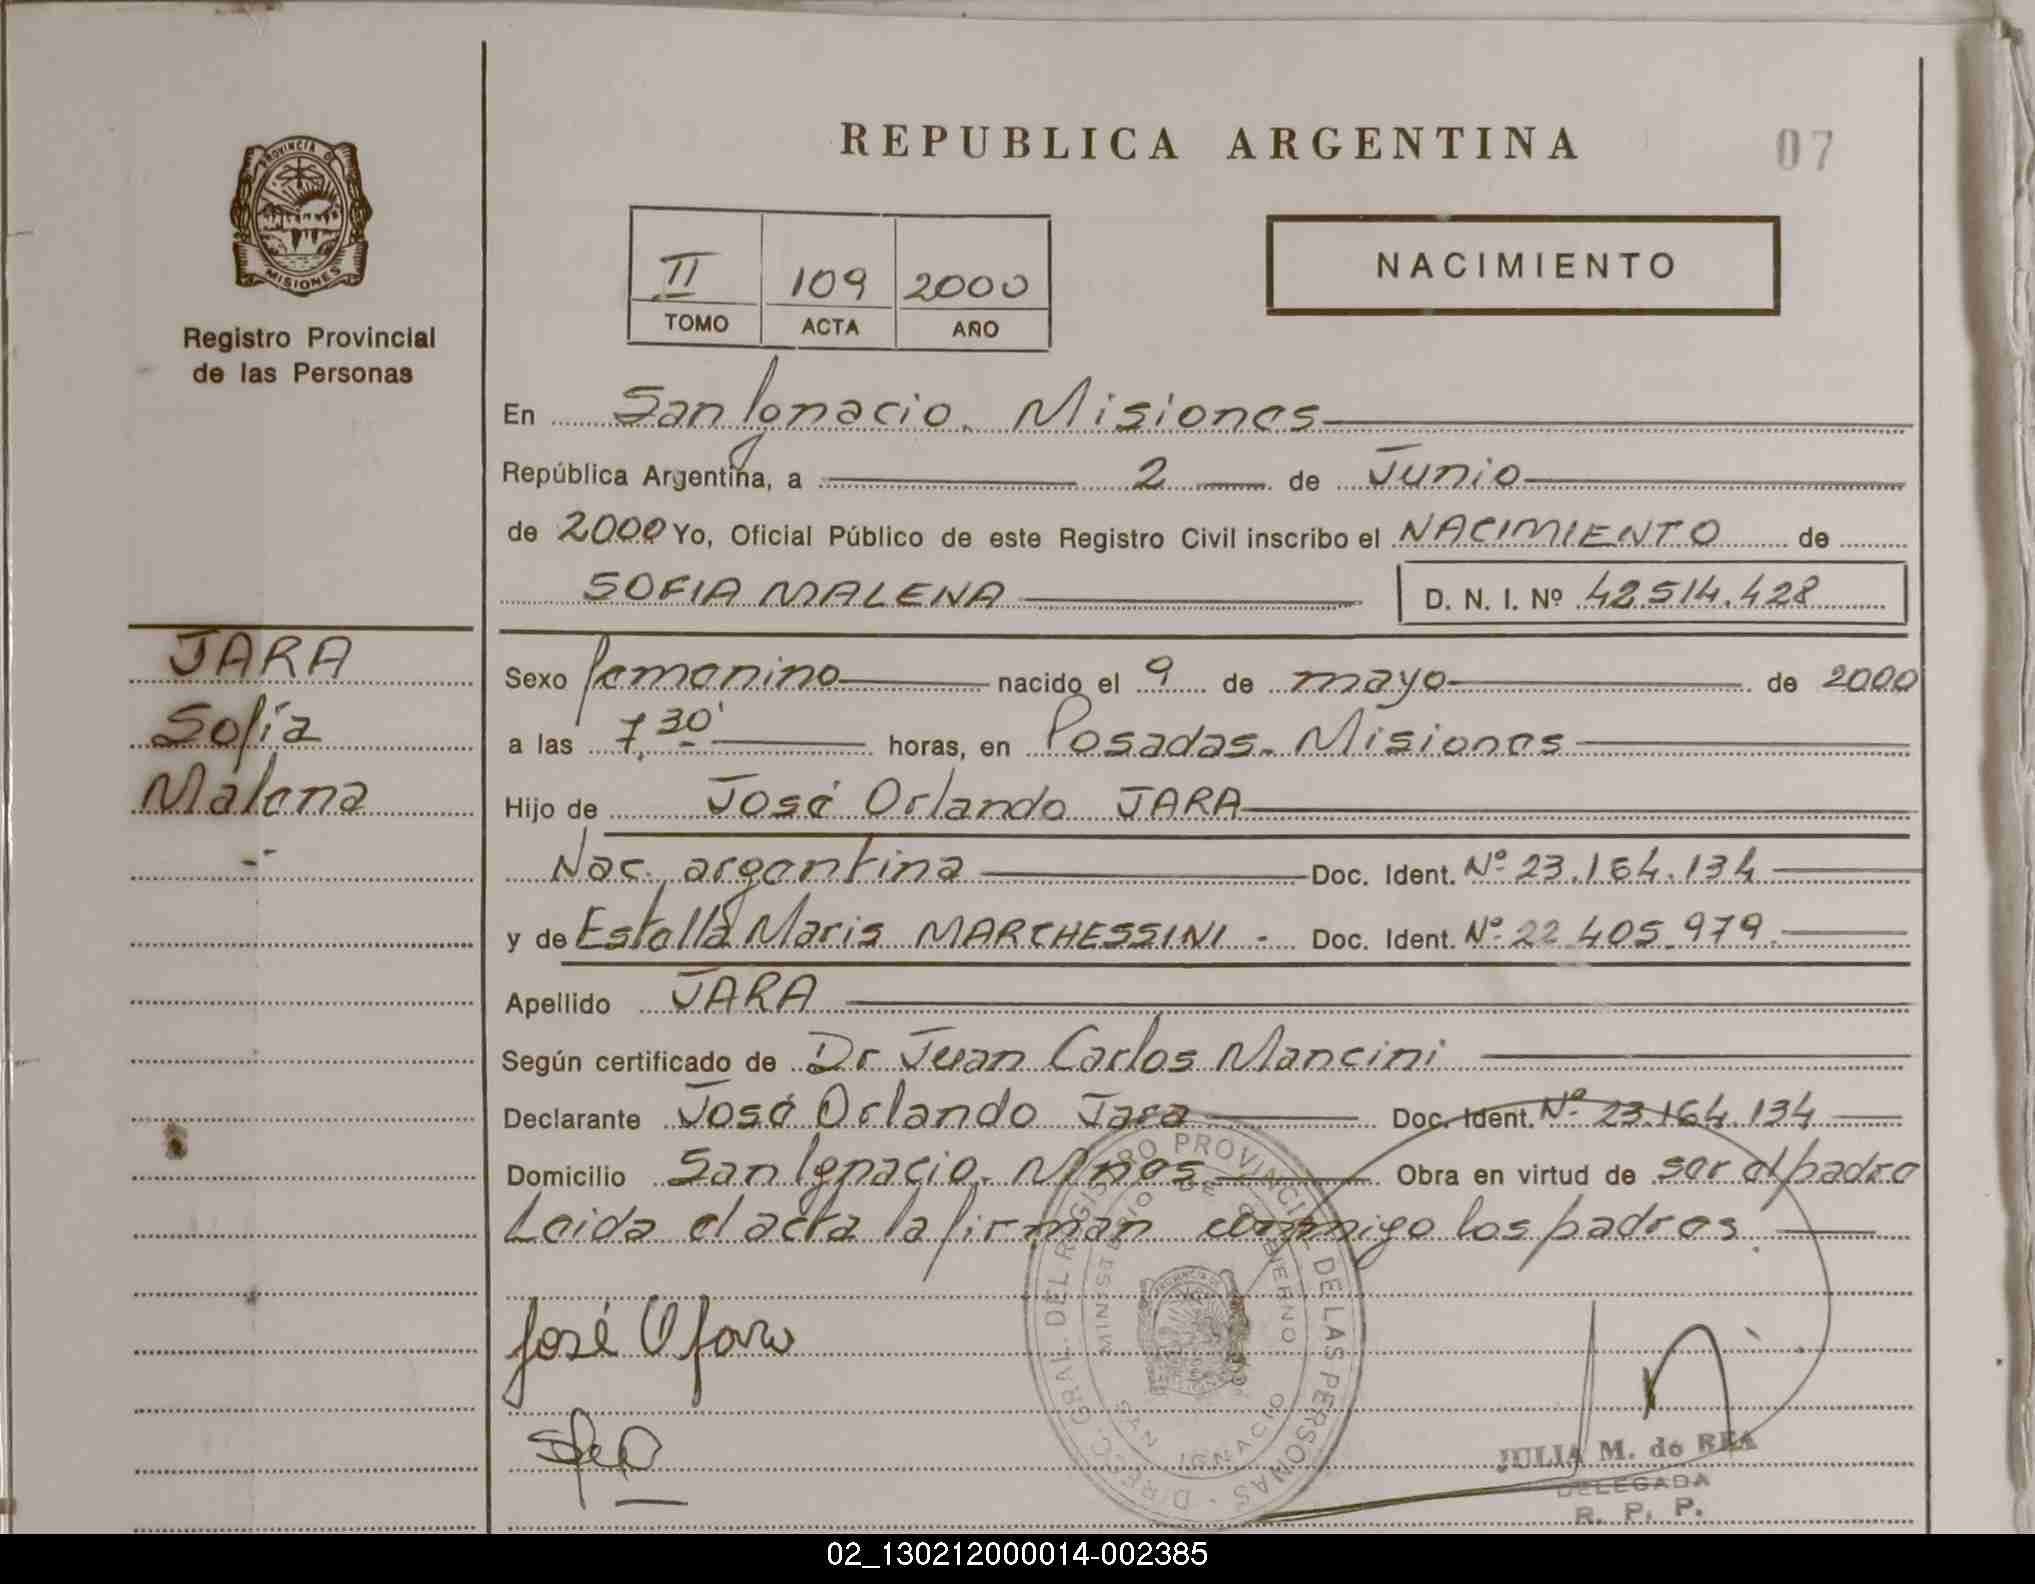 REPUBLICA ARGENTINA
07
PROVINCIA DE
MISIONES
Registro Provincial
de las Personas
II 109 2000
TOMO ACTA AÑO
NACIMIENTO
En San Ignacio. Misiones
República Argentina, a 2 de Junio
de 2000 Yo, Oficial Público de este Registro Civil inscribo el NACIMIENTO de
SOFIA MALENA D. N. I. Nº 42.514.428
JARA
Sofía
Malena
Sexo femenino nacido el 9 de mayo de 2000
a las 7,30' horas, en Posadas. Misiones
Hijo de José Orlando JARA
Nac. argentina Doc. Ident. Nº 23.164.134
y de Estella Maris MARCHESSINI - Doc. Ident. Nº 22.405.979.
Apellido JARA
Según certificado de Dr Juan Carlos Mancini
Declarante José Orlando Jara Doc. Ident. Nº 23.164.134
Domicilio San Ignacio. Mnes Obra en virtud de ser el padre
Leida el acta la firman conmigo los padres.
José O Jara
DIREC. GRAL. DEL REGISTRO PROVINCIAL DE LAS PERSONAS
MINISTERIO DE GOBIERNO
SAN IGNACIO
JULIA M. de REA
DELEGADA
R. P. P.
02_130212000014-002385